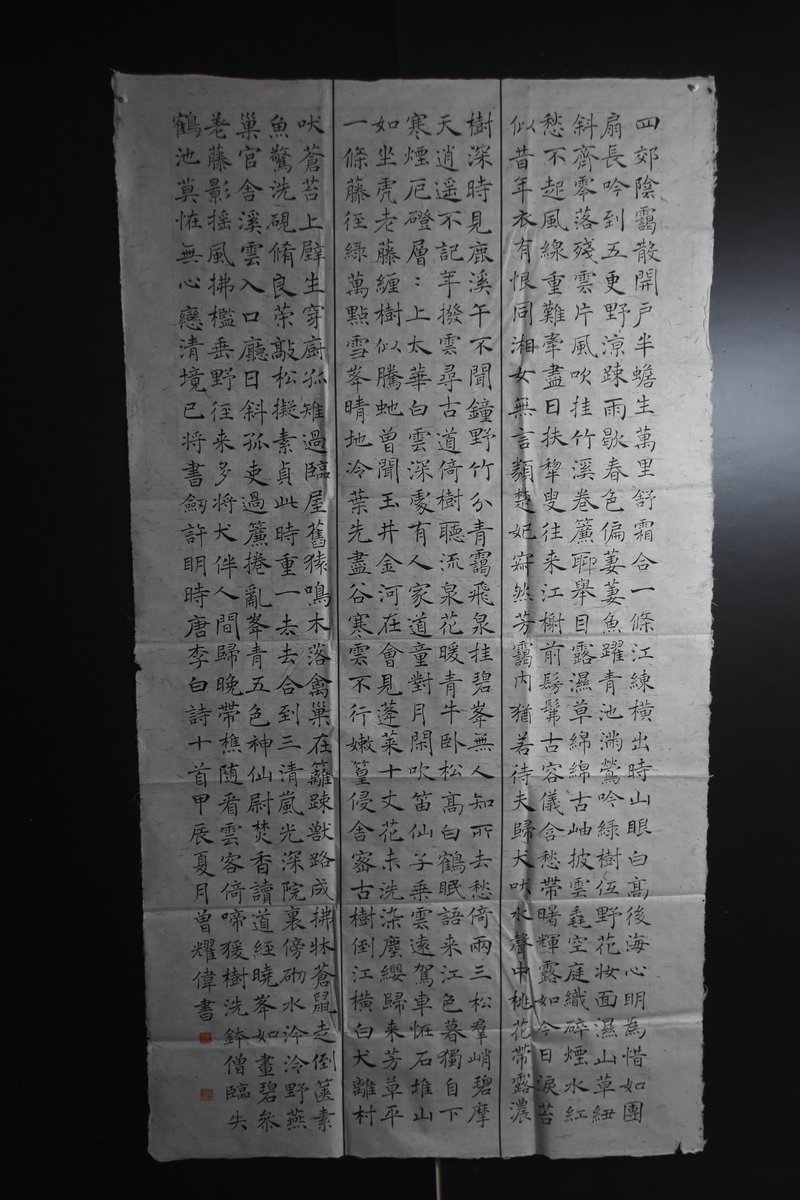 四郊陰靄散開戶半蟾生萬里舒霜合一條江練橫出時山眼白高後海心明為惜如團
扇長吟到五更野涼疎雨歇春色偏萋萋魚躍青池滿鶯吟綠樹低野花妝面濕山草紐
斜齊零落殘雲片風吹挂竹溪卷簾聊舉目露濕草綿綿古岫披雲毳空庭織碎煙水紅
愁不起風線重難牽盡日扶犂叟往来江榭前髣髴古容儀含愁帶曙輝露如今日淚苔
似昔年衣有恨同湘女無言類楚妃寂然芳靄內猶若待夫歸犬吠水聲中桃花帶露濃
樹深時見鹿溪午不聞鐘野竹分青靄飛泉挂碧峯無人知所去愁倚兩三松羣峭碧摩
天逍遥不記年撥雲尋古道倚樹聽流泉花暖青牛卧松高白鶴眠語来江色暮獨自下
寒煙厄磴層:上太華白雲深處有人家道童對月閑吹笛仙子乘雲遠駕車怪石堆山
如坐虎老藤纏樹似騰虵曾聞玉井金河在會見蓬萊十丈花未洗染塵纓歸来芳草平
一條藤徑綠萬點雪峯晴地冷葉先盡谷寒雲不行嫩篁侵舍密古樹倒江橫白犬離村
吠蒼苔上壁生穿廚孤雉過臨屋舊猿鳴木落禽巢在籬疎獸路成拂牀蒼鼠走倒篋素
魚驚洗硯脩良策敲松擬素貞此時重一去去合到三清嵐光深院裏傍砌水泠泠野燕
巢官舍溪雲入口廳日斜孤吏過簾捲亂峯青五色神仙尉焚香讀道經曉峯如畫碧參
差藤影搖風拂檻垂野徑来多將犬伴人間歸晚帶樵随看雲客倚啼猨樹洗鉢僧臨失
鶴池莫怪無心戀清境已將書劒許明時唐李白詩十首甲辰夏月曾耀偉書